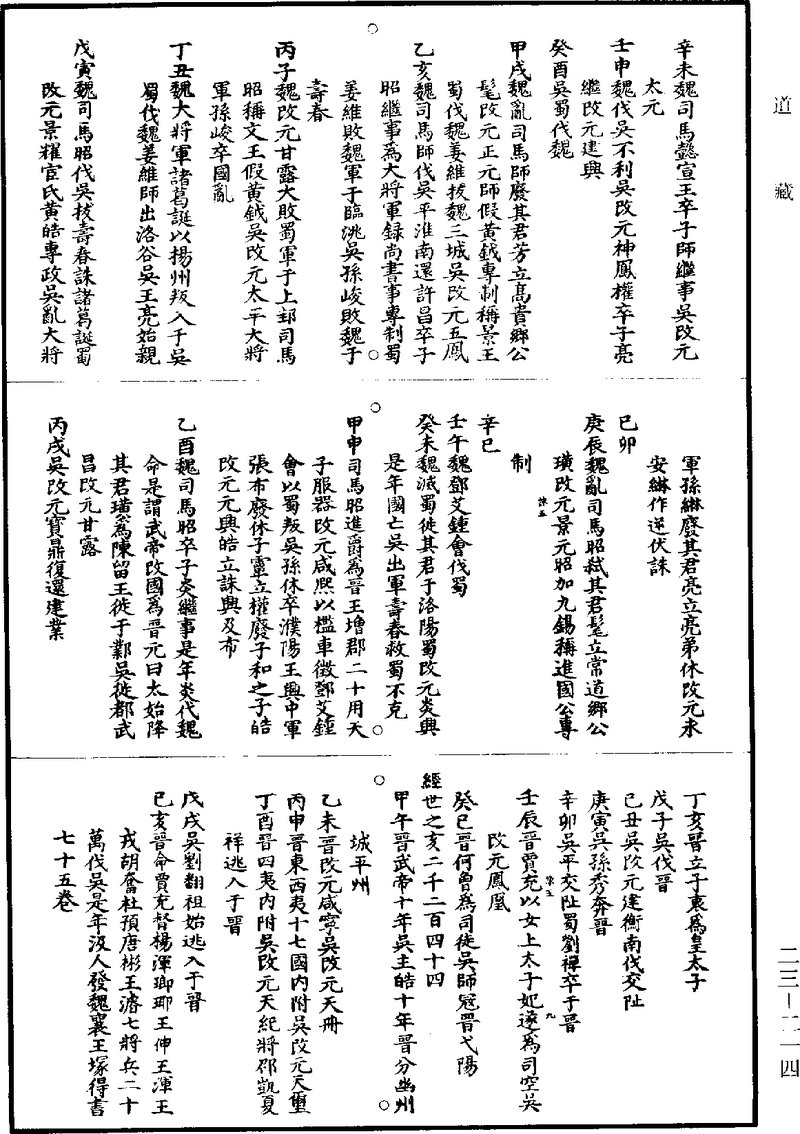 道藏
辛未魏司馬懿宣王卒子師繼事吳改元
太元
壬申魏伐吳不利吳改元神鳳權卒子亮
繼改元建興
癸酉吳蜀伐魏
甲戌魏亂司馬師廢其君芳立高貴鄉公
髦改元正元師假黃鉞專制稱景王
蜀伐魏姜維拔魏三城吳改元五鳳
乙亥魏司馬師伐吳平淮南還許昌卒子
昭繼事爲大將軍録尚書事專制蜀
姜維敗魏軍于臨洮吳孫峻敗魏于
壽春
丙子魏改元甘露大敗蜀軍于上邽司馬
昭稱文王假黃鉞吳改元太平大將
軍孫峻卒國亂
丁丑魏大將軍諸葛誕以揚州叛入于吳
蜀伐魏姜維師出洛谷吳王亮始親
戊寅魏司馬昭伐吳拔壽春誅諸葛誕蜀
改元景耀宦氏黃皓專政吳亂大將
軍孫綝廢其君亮立亮弟休改元永
安綝作逆伏誅
己卯
庚辰魏亂司馬昭弒其君髦立常道鄉公
璜改元景元昭加九錫稱進國公專
制
辛巳
壬午魏鄧艾鍾會伐蜀
癸未魏滅蜀徙其君于洛陽蜀改元炎興
是年國亡吳出軍壽春救蜀不克
甲申司馬昭進爵爲晉王增郡二十用天
子服器改元咸熙以檻車徵鄧艾鍾
會以蜀叛吳孫休卒濮陽王興中軍
張布廢休子𩅦立權廢子和之子皓
改元元興皓立誅興及布
乙酉魏司馬昭卒子炎繼事是年炎代魏
命是謂武帝改國爲晉元曰太始降
其君璜爲陳留王徙于鄴吳徙都武
昌改元甘露
丙戌吳改元寶鼎復還建業
丁亥晉立子衷爲皇太子
戊子吳伐晉
己丑吳改元建衡南伐交趾
庚寅吳孫秀奔晉
辛卯吳平交趾蜀劉禪卒于晉
壬辰晉賈充以女上太子妃遂爲司空吳
改元鳳凰
癸巳晉何曾爲司徒吳師寇晉弋陽
經世之亥二千二百四十四
甲午晉武帝十年吳主皓十年晉分幽州
城平州
乙未晉改元咸寧吳改元天冊
丙申晉東西夷十七國內附吳改元天璽
丁酉晉四夷內附吳改元天紀將邵凱夏
祥逃入于晉
戊戌吳劉翻祖始逃入于晉
己亥晉命賈充督楊渾瑯琊王伷王渾王
戎胡奮杜預唐彬王濬七將兵二十
萬伐吳是年汲人發魏襄王塚得書
七十五卷
二三—二一四